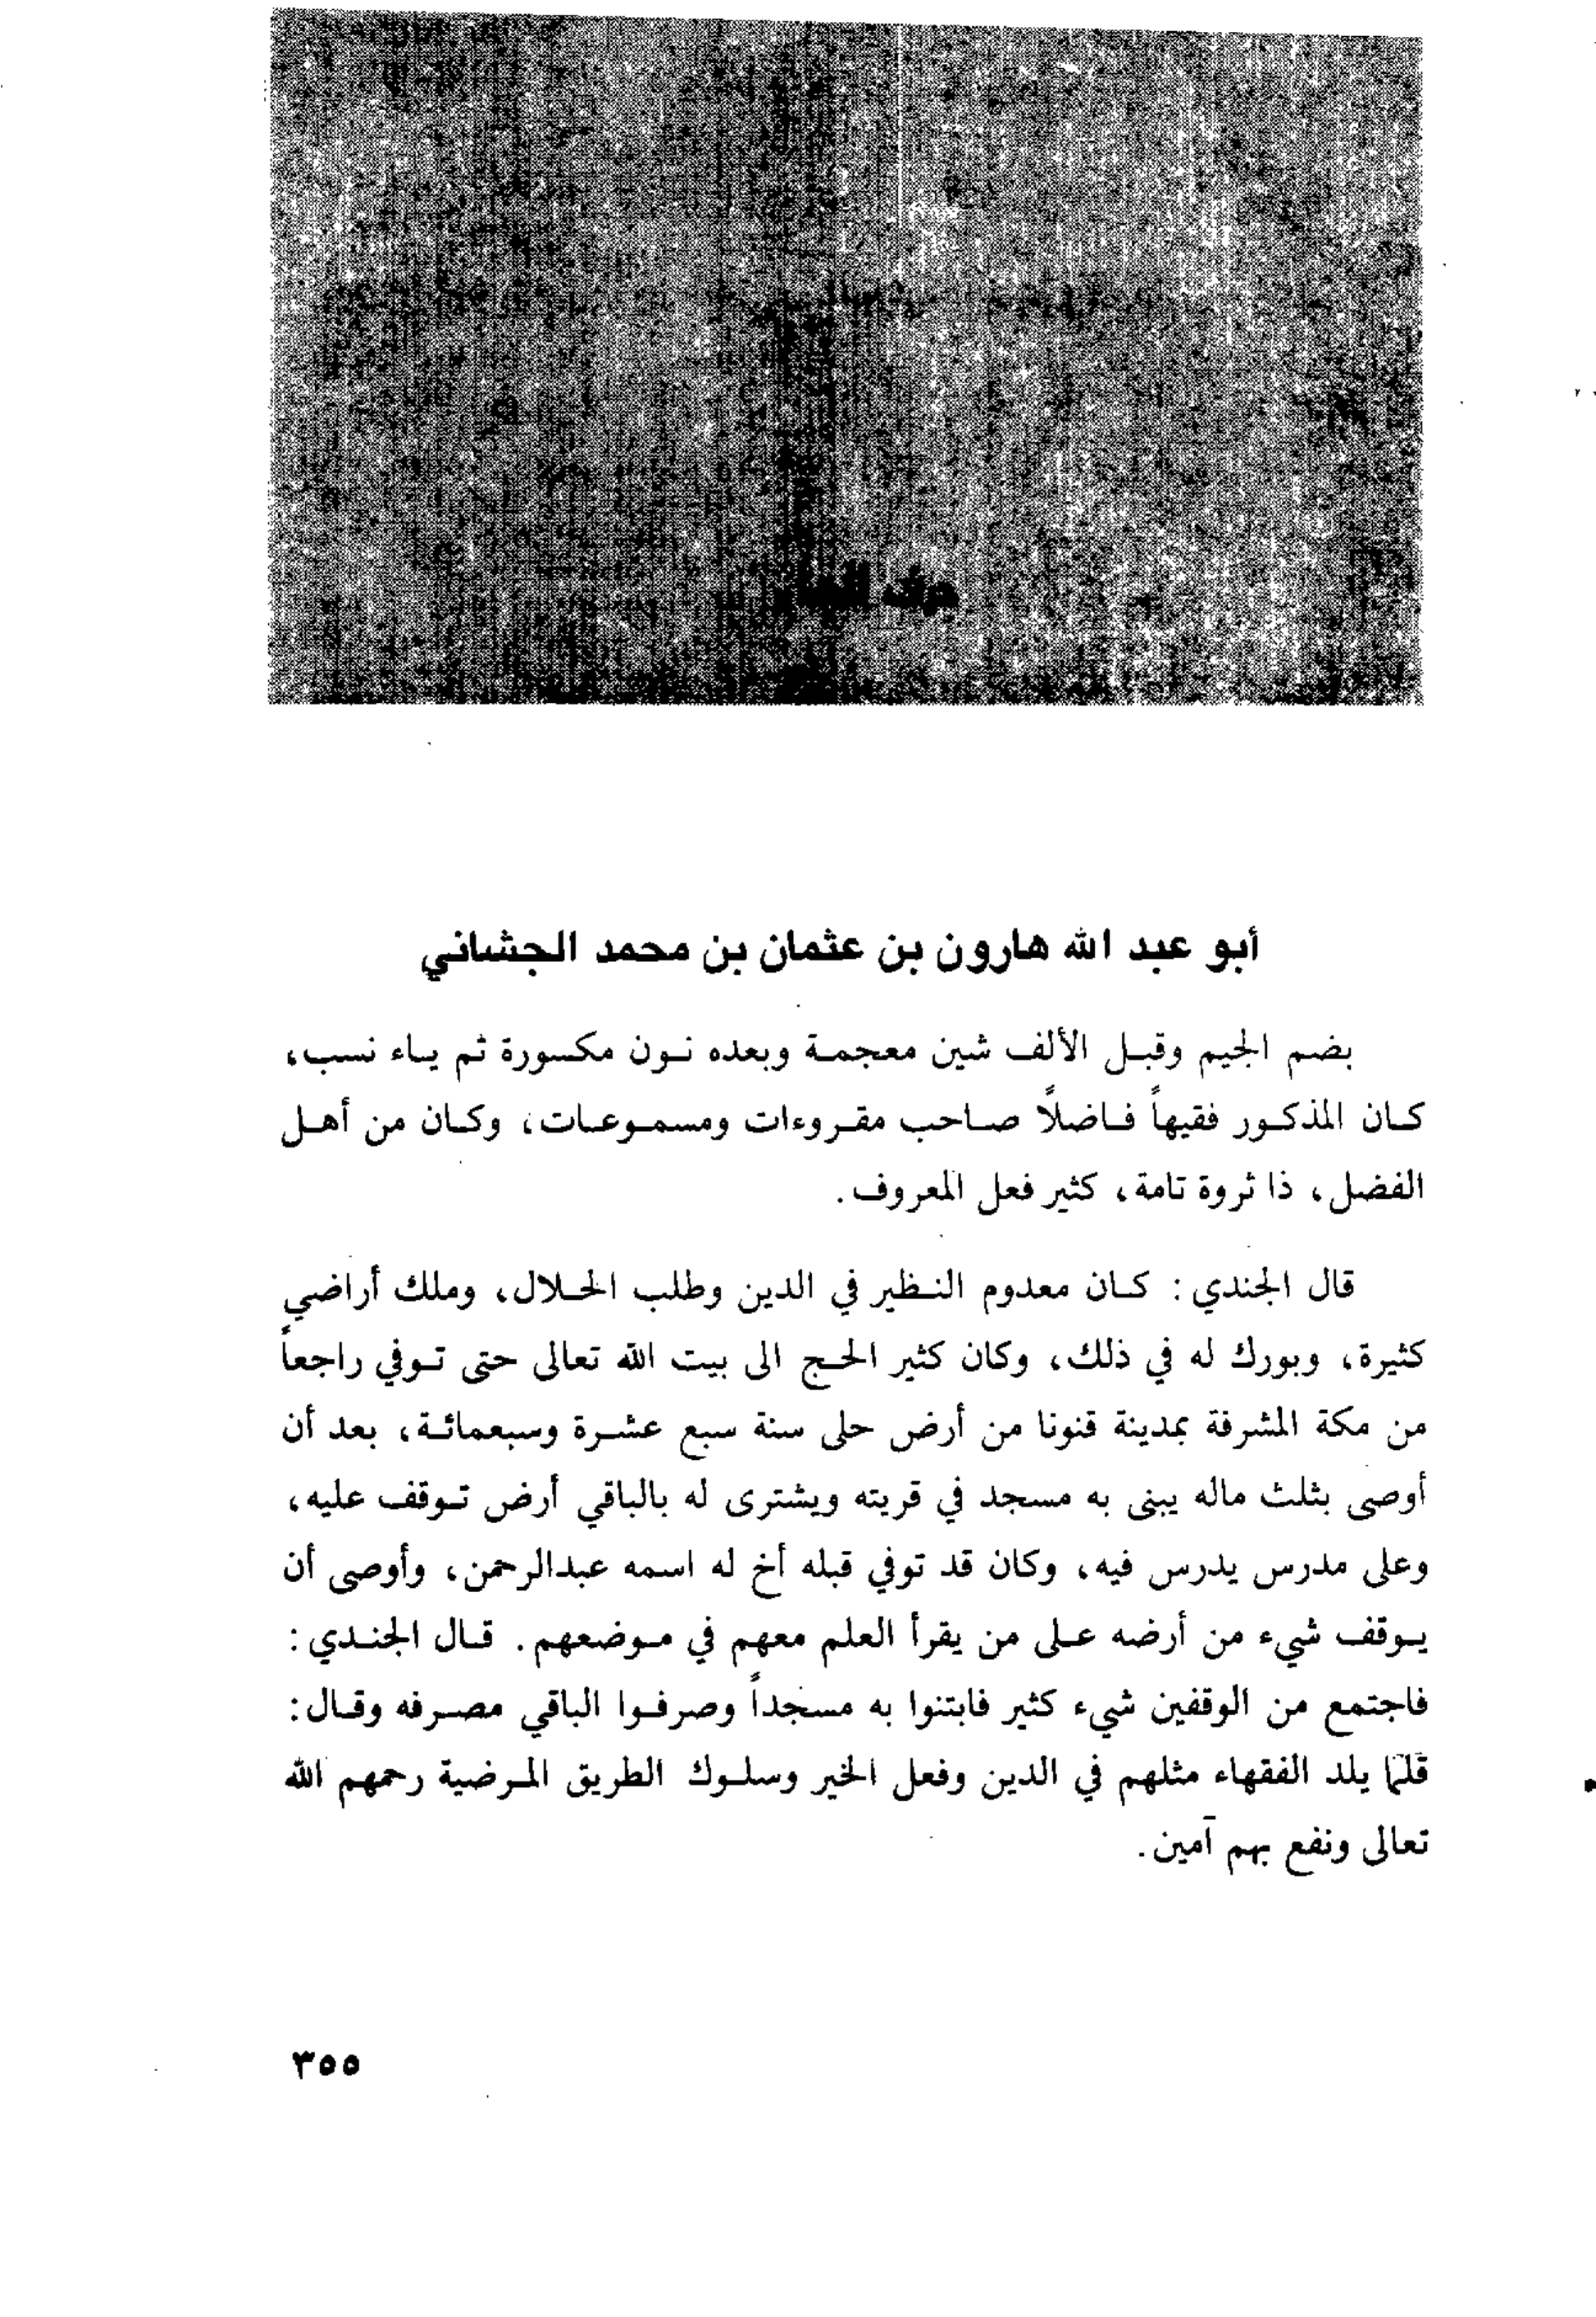 حرف الهاء
أبو عبد الله هارون بن عثمان بن محمد الجشاني
بضم الجيم وقبل الألف شين معجمة وبعده نون مكسورة ثم ياء نسب،
كان المذكور فقيهاً فاضلاً صاحب مقروءات ومسموعات، وكان من أهل
الفضل، ذا ثروة تامة، كثير فعل المعروف.
قال الجندي: كان معدوم النظير في الدين وطلب الحلال، وملك أراضي
كثيرة، وبورك له في ذلك، وكان كثير الحج الى بيت الله تعالى حتى توفي راجعاً
من مكة المشرفة بمدينة قنونا من أرض حلى سنة سبع عشرة وسبعمائة، بعد أن
أوصى بثلث ماله يبنى به مسجد في قريته ويشترى له بالباقي أرض توقف عليه،
وعلى مدرس يدرس فيه، وكان قد توفي قبله أخ له اسمه عبدالرحمن، وأوصى أن
يوقف شيء من أرضه على من يقرأ العلم معهم في موضعهم. قال الجندي:
فاجتمع من الوقفين شيء كثير فابتنوا به مسجداً وصرفوا الباقي مصرفه وقال:
قلَّما يلد الفقهاء مثلهم في الدين وفعل الخير وسلوك الطريق المرضية رحمهم الله
تعالى ونفع بهم آمين.
٣٥٥